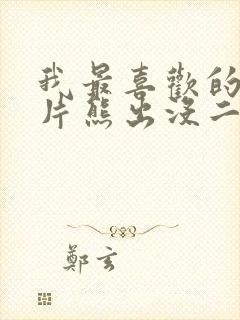 我最喜歡的
片熊出沒二
鄭玄